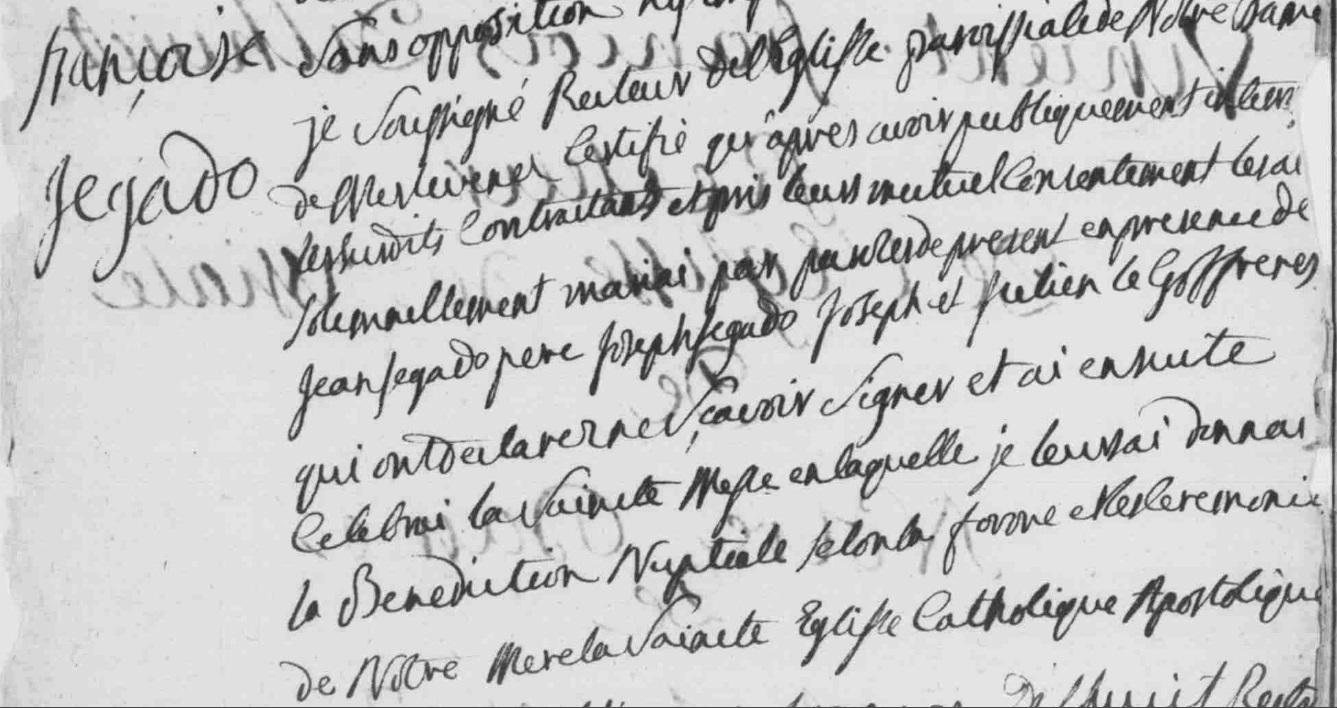 françoise
Jegado
sans opposition
je soussigné Recteur del'Eglisse paroissiale de Notre Dame
de Merlevenez Certifie qu'apres avoir publiquement inter
lessusdits Contractants et pris leurs mutuel Consentement lesai
solemnellement mariai par parolles de present en presence de
jean jegado pere joseph jegado joseph et julien le Goff freres
qui ont declarer ne sçavoir signer et ai ensuite
Celebrai la saincte Messe en laquelle je leurs ai donnai
la Benediction Nuptiale selon la forme et les Ceremonie
de Notre Mere la saincte Eglisse Catholique Apostolique